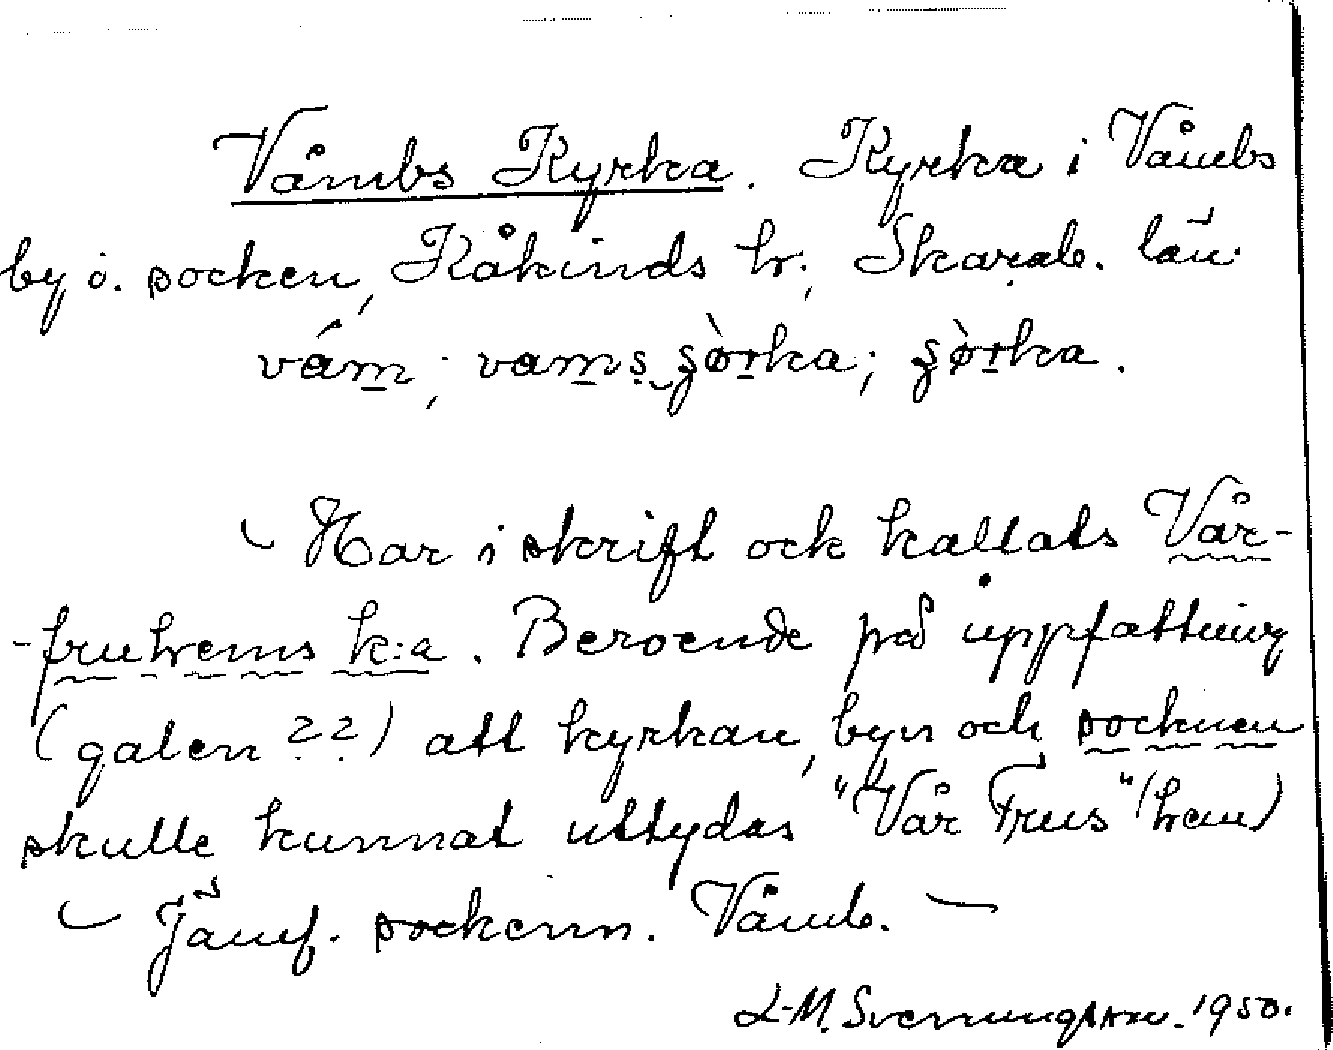 Våmbs Kyrka. Kyrka i Våmbs
by o. socken, Kåkinds hr; Skarab. län.
vám; vams şòrka; şòrka.
– Har i skrift ock kallats Vår-
-fruhems k:a. Beroende på uppfattning
(galen ??) att kyrkan, byn och socknen
skulle kunnat uttydas "Vår Frus" (hem)
– Jämf. sockenn. Våmb. –
L-M. Svenungsson. 1950.